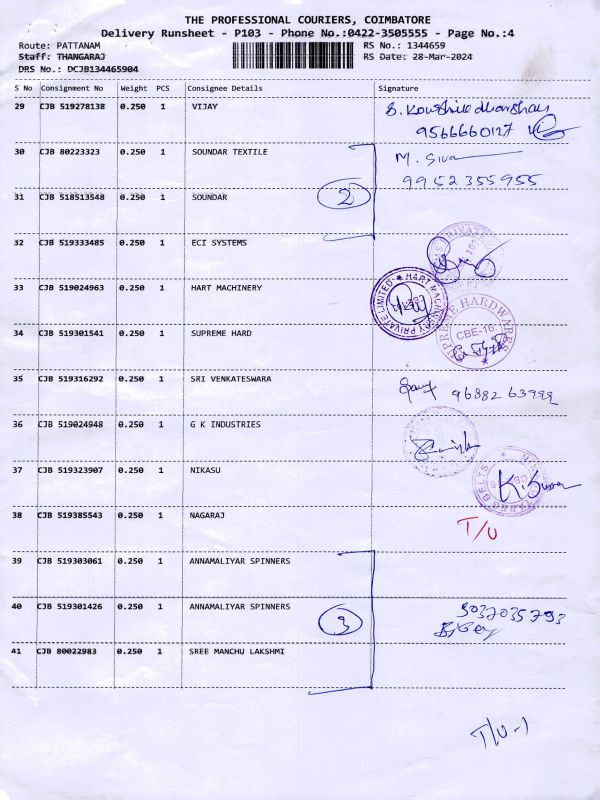 THE PROFESSIONAL COURIERS, COIMBATORE
Delivery Runsheet - P103 - Phone No.:0422-3505555 - Page No.:4
Route: PATTANAM RS No.: 1344659
Staff: THANGARAJ RS Date: 28-Mar-2024
DRS No.: DCJB134465904
S No Consignment No Weight PCS Consignee Details Signature
29 CJB 519278138 0.250 1 VIJAY
9566660127
30 CJB 80223323 0.250 1 SOUNDAR TEXTILE M. Siva
9952355955
31 CJB 518513548 0.250 1 SOUNDAR 2
32 CJB 519333485 0.250 1 ECI SYSTEMS
33 CJB 519024963 0.250 1 HART MACHINERY HART MACHINERY PRIVATE LIMITED
34 CJB 519301541 0.250 1 SUPREME HARD HARDWARES CBE-16.
35 CJB 519316292 0.250 1 SRI VENKATESWARA
36 CJB 519024948 0.250 1 G K INDUSTRIES
37 CJB 519323907 0.250 1 NIKASU BELTS
38 CJB 519385543 0.250 1 NAGARAJ T/U
39 CJB 519303061 0.250 1 ANNAMALIYAR SPINNERS
40 CJB 519301426 0.250 1 ANNAMALIYAR SPINNERS 3
41 CJB 80022983 0.250 1 SREE MANCHU LAKSHMI
T/U-1